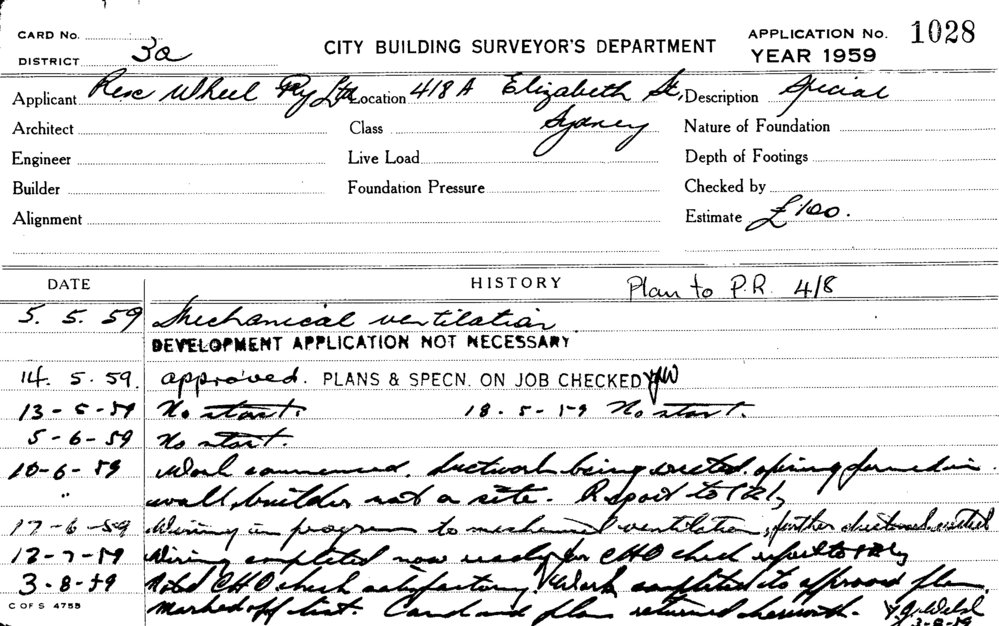 CARD No.
DISTRICT 3a
CITY BUILDING SURVEYOR'S DEPARTMENT
APPLICATION No. 1028
YEAR 1959
Applicant Rex Wheel Pty Ltd Location 418A Elizabeth St, Description Special
Architect Class Sydney Nature of Foundation
Engineer Live Load Depth of Footings
Builder Foundation Pressure Checked by
Alignment Estimate £100.
DATE HISTORY Plan to P.R. 4/8
5. 5. 59 Mechanical ventilation
DEVELOPMENT APPLICATION NOT NECESSARY
14. 5. 59. approved. PLANS & SPECN. ON JOB CHECKED
13-5-59 No start. 18-5-59 No start.
5-6-59 No start.
10-6-59 Work commenced. ductwork being erected. opening formed in
" wall, builder not on site. Report to
17-6-59 Wiring in progress to mechanical ventilation, further ductwork erected
13-7-59 Wiring completed now ready for CHO check report to
3-8-59 Noted CHO check satisfactory. Work completed to approved plan
C OF S 4755 Marked off list. Card and plan returned herewith.
3-8-59